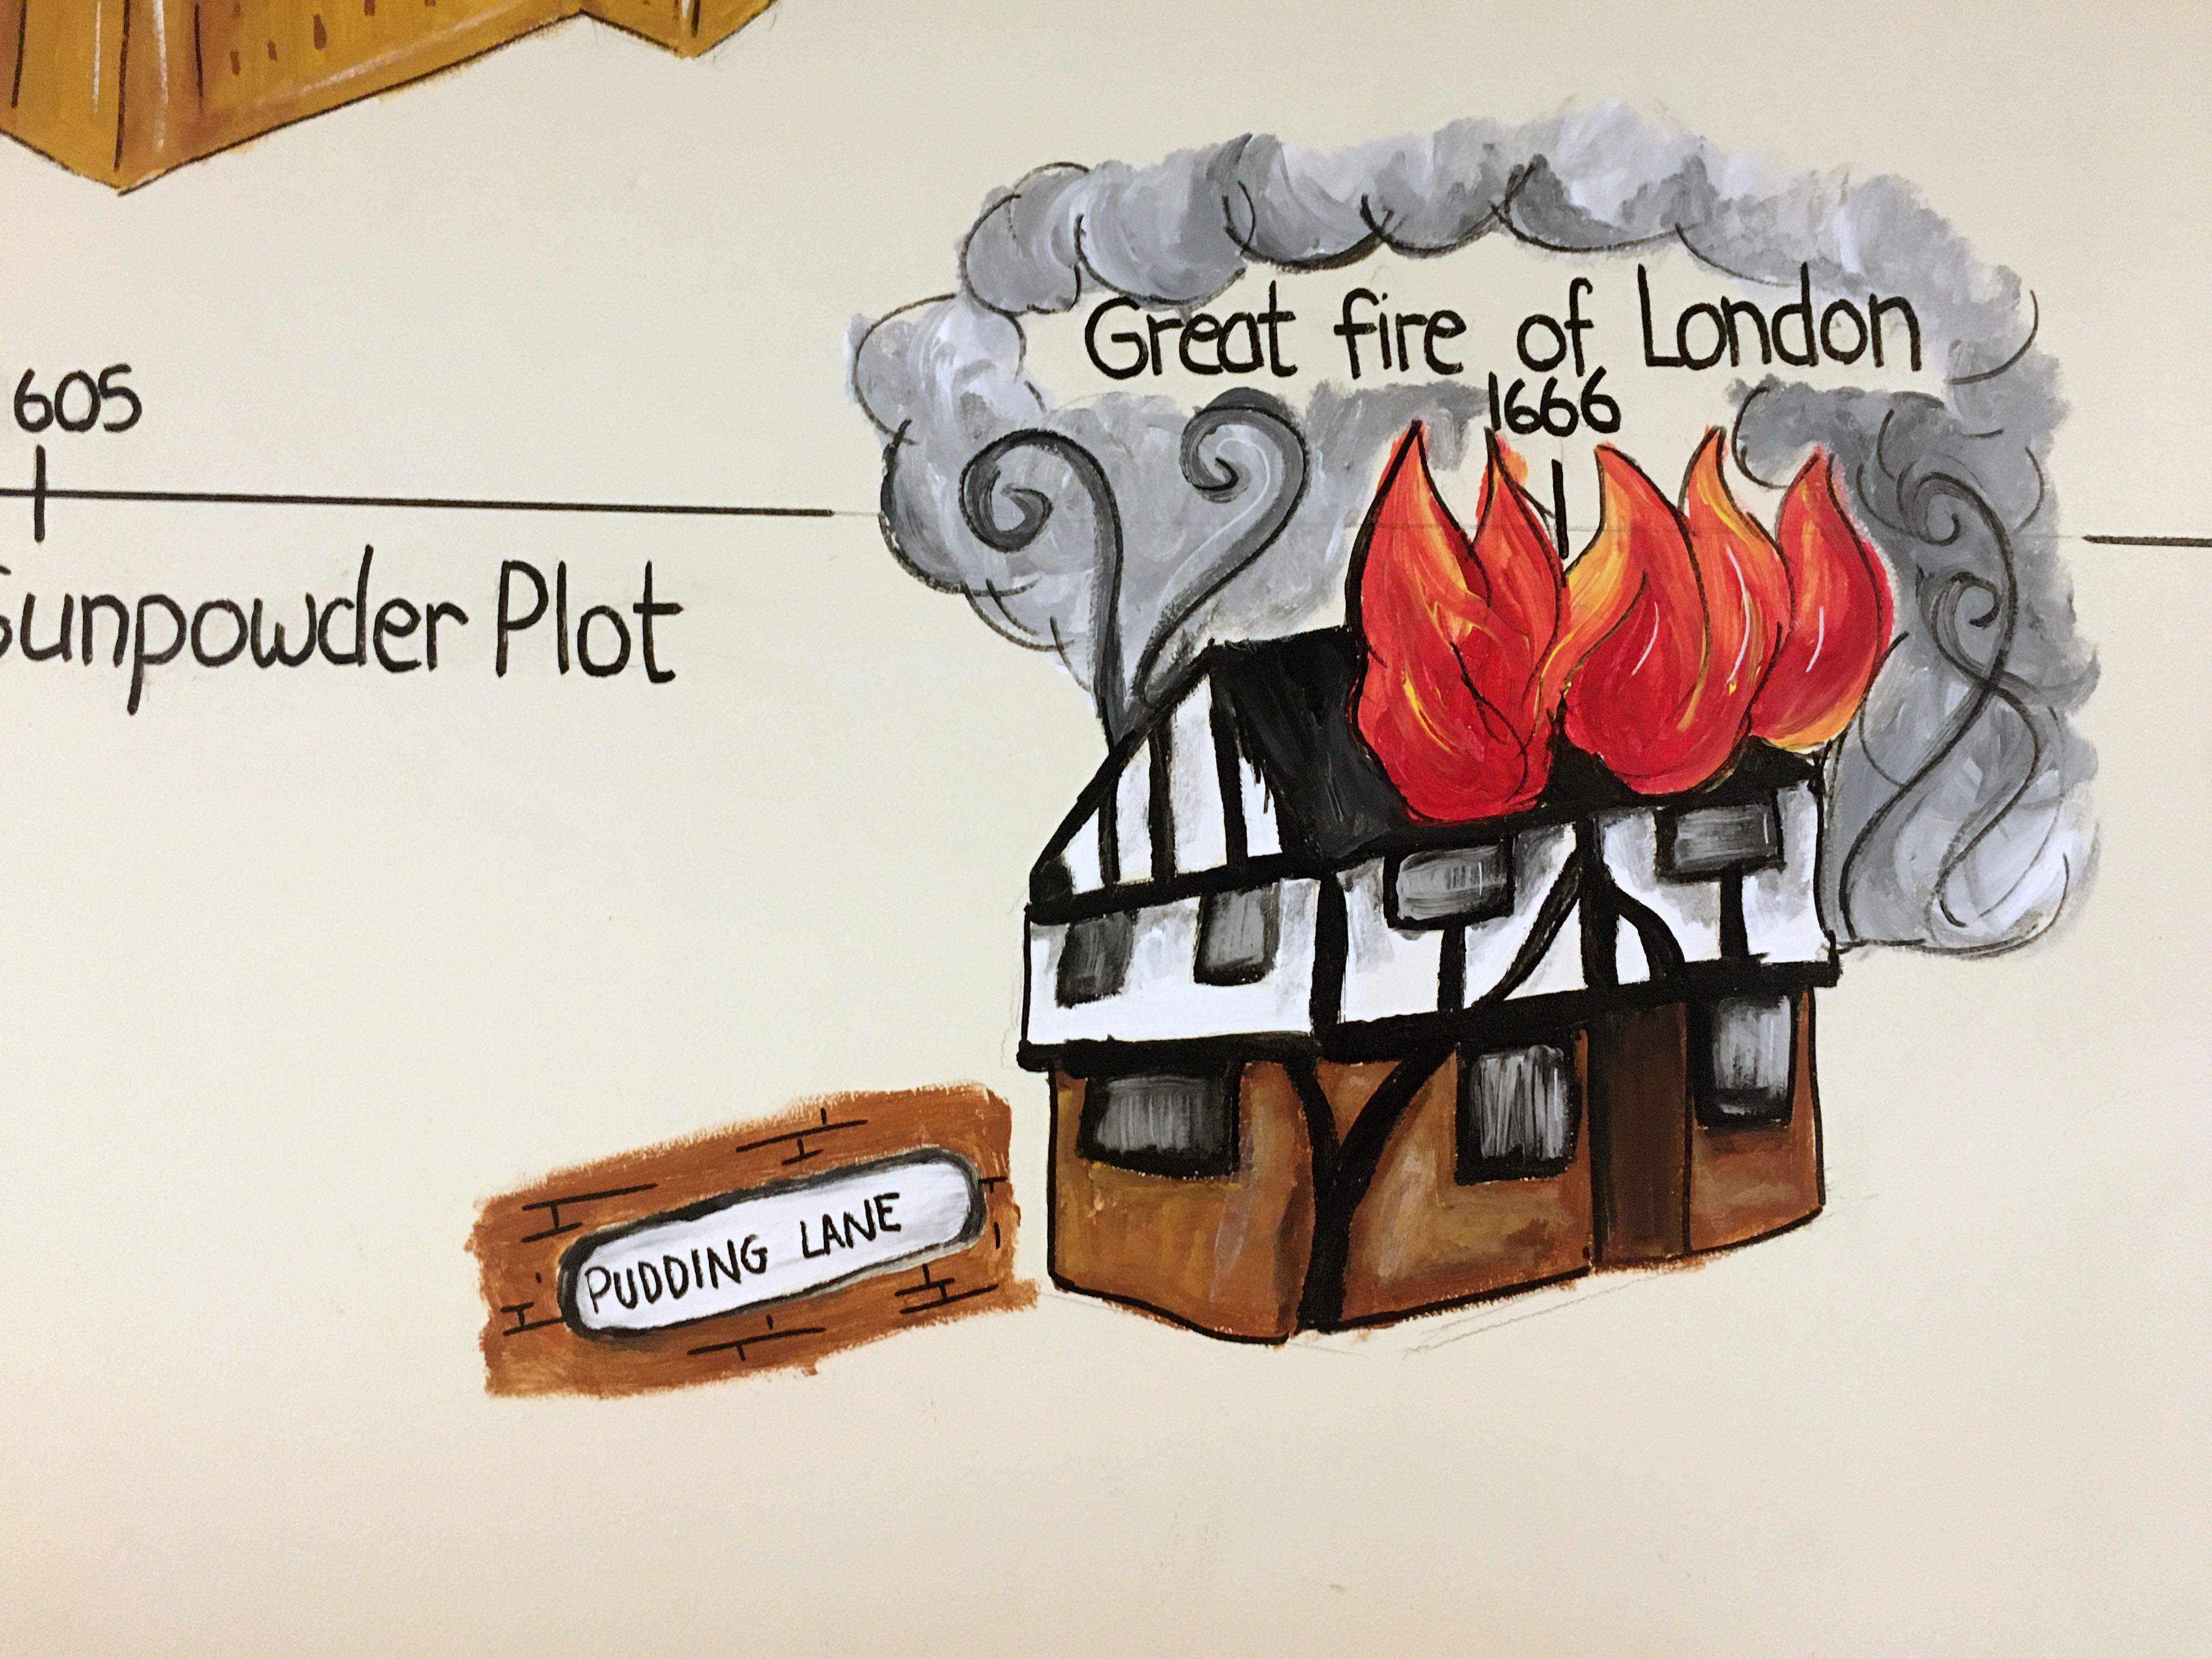 605
Gunpowder Plot
Great fire of London
1666
PUDDING LANE